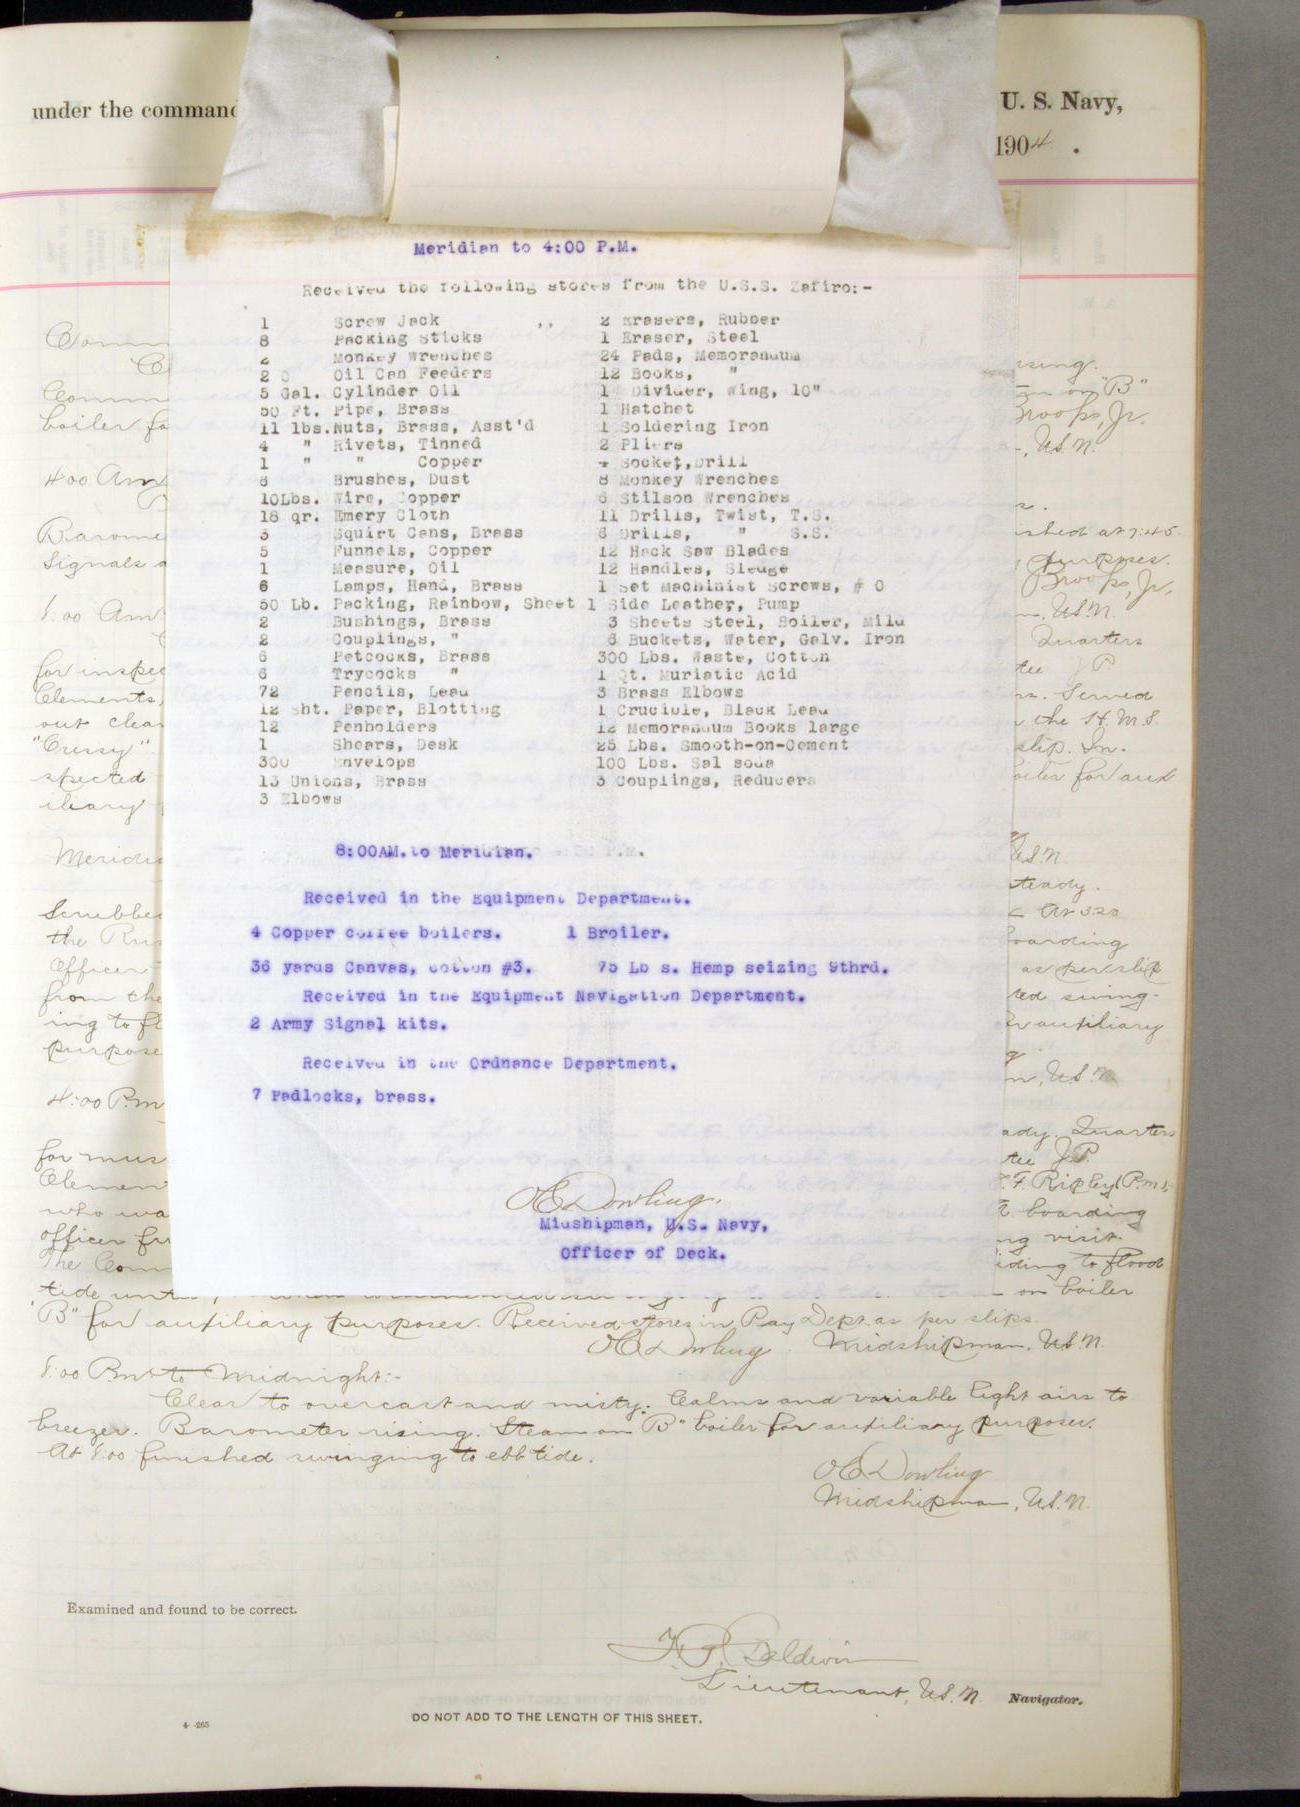 under the command
U. S. Navy,
1904 .
Meridian to 4:00 P.M.
Received the following stores from the U.S.S. Zafiro:-
1 Screw Jack 2 Erasers, Rubber
8 Packing Sticks 1 Eraser, Steel
2 Monkey Wrenches 24 Pads, Memorandum
2 Oil Can Feeders 12 Books, "
5 Gal. Cylinder Oil 1 Divider, Wing, 10"
50 Ft. Pipe, Brass 1 Hatchet
11 lbs. Nuts, Brass, Asst'd 1 Soldering Iron
4 " Rivets, Tinned 2 Pliers
1 " " Copper 4 Socket, Drill
6 Brushes, Dust 8 Monkey Wrenches
10Lbs. Wire, Copper 6 Stilson Wrenches
18 qr. Emery Cloth 11 Drills, Twist, T.S.
3 Squirt Cans, Brass 6 Drills, " S.S.
5 Funnels, Copper 12 Hack Saw Blades
1 Measure, Oil 12 Handles, Sledge
6 Lamps, Hand, Brass 1 Set Machinist Screws, # 0
50 Lb. Packing, Rainbow, Sheet 1 Side Leather, Pump
2 Bushings, Brass 3 Sheets Steel, Boiler, Mild
2 Couplings, " 6 Buckets, Water, Galv. Iron
6 Petcocks, Brass 300 Lbs. Waste, Cotton
6 Trycocks " 1 Qt. Muriatic Acid
72 Pencils, Lead 3 Brass Elbows
12 sht. Paper, Blotting 1 Crucible, Black Lead
12 Penholders 12 Memorandum Books large
1 Shears, Desk 25 Lbs. Smooth-on-Cement
300 Envelops 100 Lbs. Sal soda
13 Unions, Brass 3 Couplings, Reducers
3 Elbows
8:00AM. to Meridian.
Received in the Equipment Department.
4 Copper coffee boilers. 1 Broiler.
36 yards Canvas, cotton #3. 75 Lb s. Hemp seizing 9thrd.
Received in the Equipment Navigation Department.
2 Army Signal kits.
Received in the Ordnance Department.
7 Padlocks, brass.
O C Dowling.
Midshipman, U.S. Navy,
Officer of Deck.
boiler
4:00 Am
Signals
8:00 Am
for
Clements,
out
"Cressy".
spected
iliary
the
Officer
from the
ing to
purpose
4:00 P.m
for
who
officer
The
on "B"
Broo Jr.
U.S.N.
at 7:45
purposes.
Jr,
U.S.N.
Quarters
J P
Served
the H.M.S.
slip. In-
boiler for aux
U.S.N.
steady.
At 3:20
boarding
as per slip
swing-
auxiliary
U.S.N.
Quarters
J.P.
F. Ripley (P.m.),
boarding
visit.
to flood
tide on boiler
"B" for auxiliary purposes. Received stores in Pay Dept. as per slips.
O C Dowling Midshipman, U.S.N.
8:00 Pm to Midnight:-
Clear to overcast and misty. Calms and variable light airs to
breezes. Barometer rising. Steam on "B" boiler for auxiliary purposes.
At 8:00 finished swinging to ebb tide.
O C Dowling
Midshipman, U.S.N.
Examined and found to be correct.
F. P. Baldwin
Lieutenant, U.S.N. Navigator.
DO NOT ADD TO THE LENGTH OF THIS SHEET.
4-265